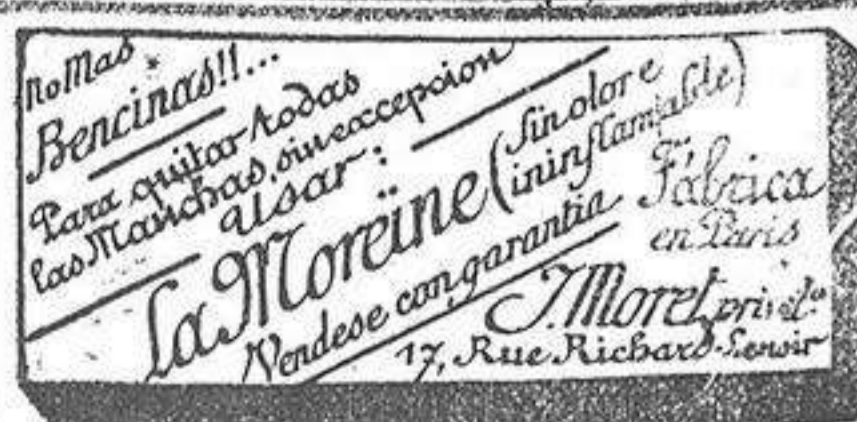 no Mas
Bencinas!!...
Para quitar todas
las Manchas, sin excepcion
Usar:
La Moreïne (Sin olor e
ininflamable)
Vendese con garantia
Fábrica
en Paris
J. Moret, privelo
17, Rue Richard-Lenoir